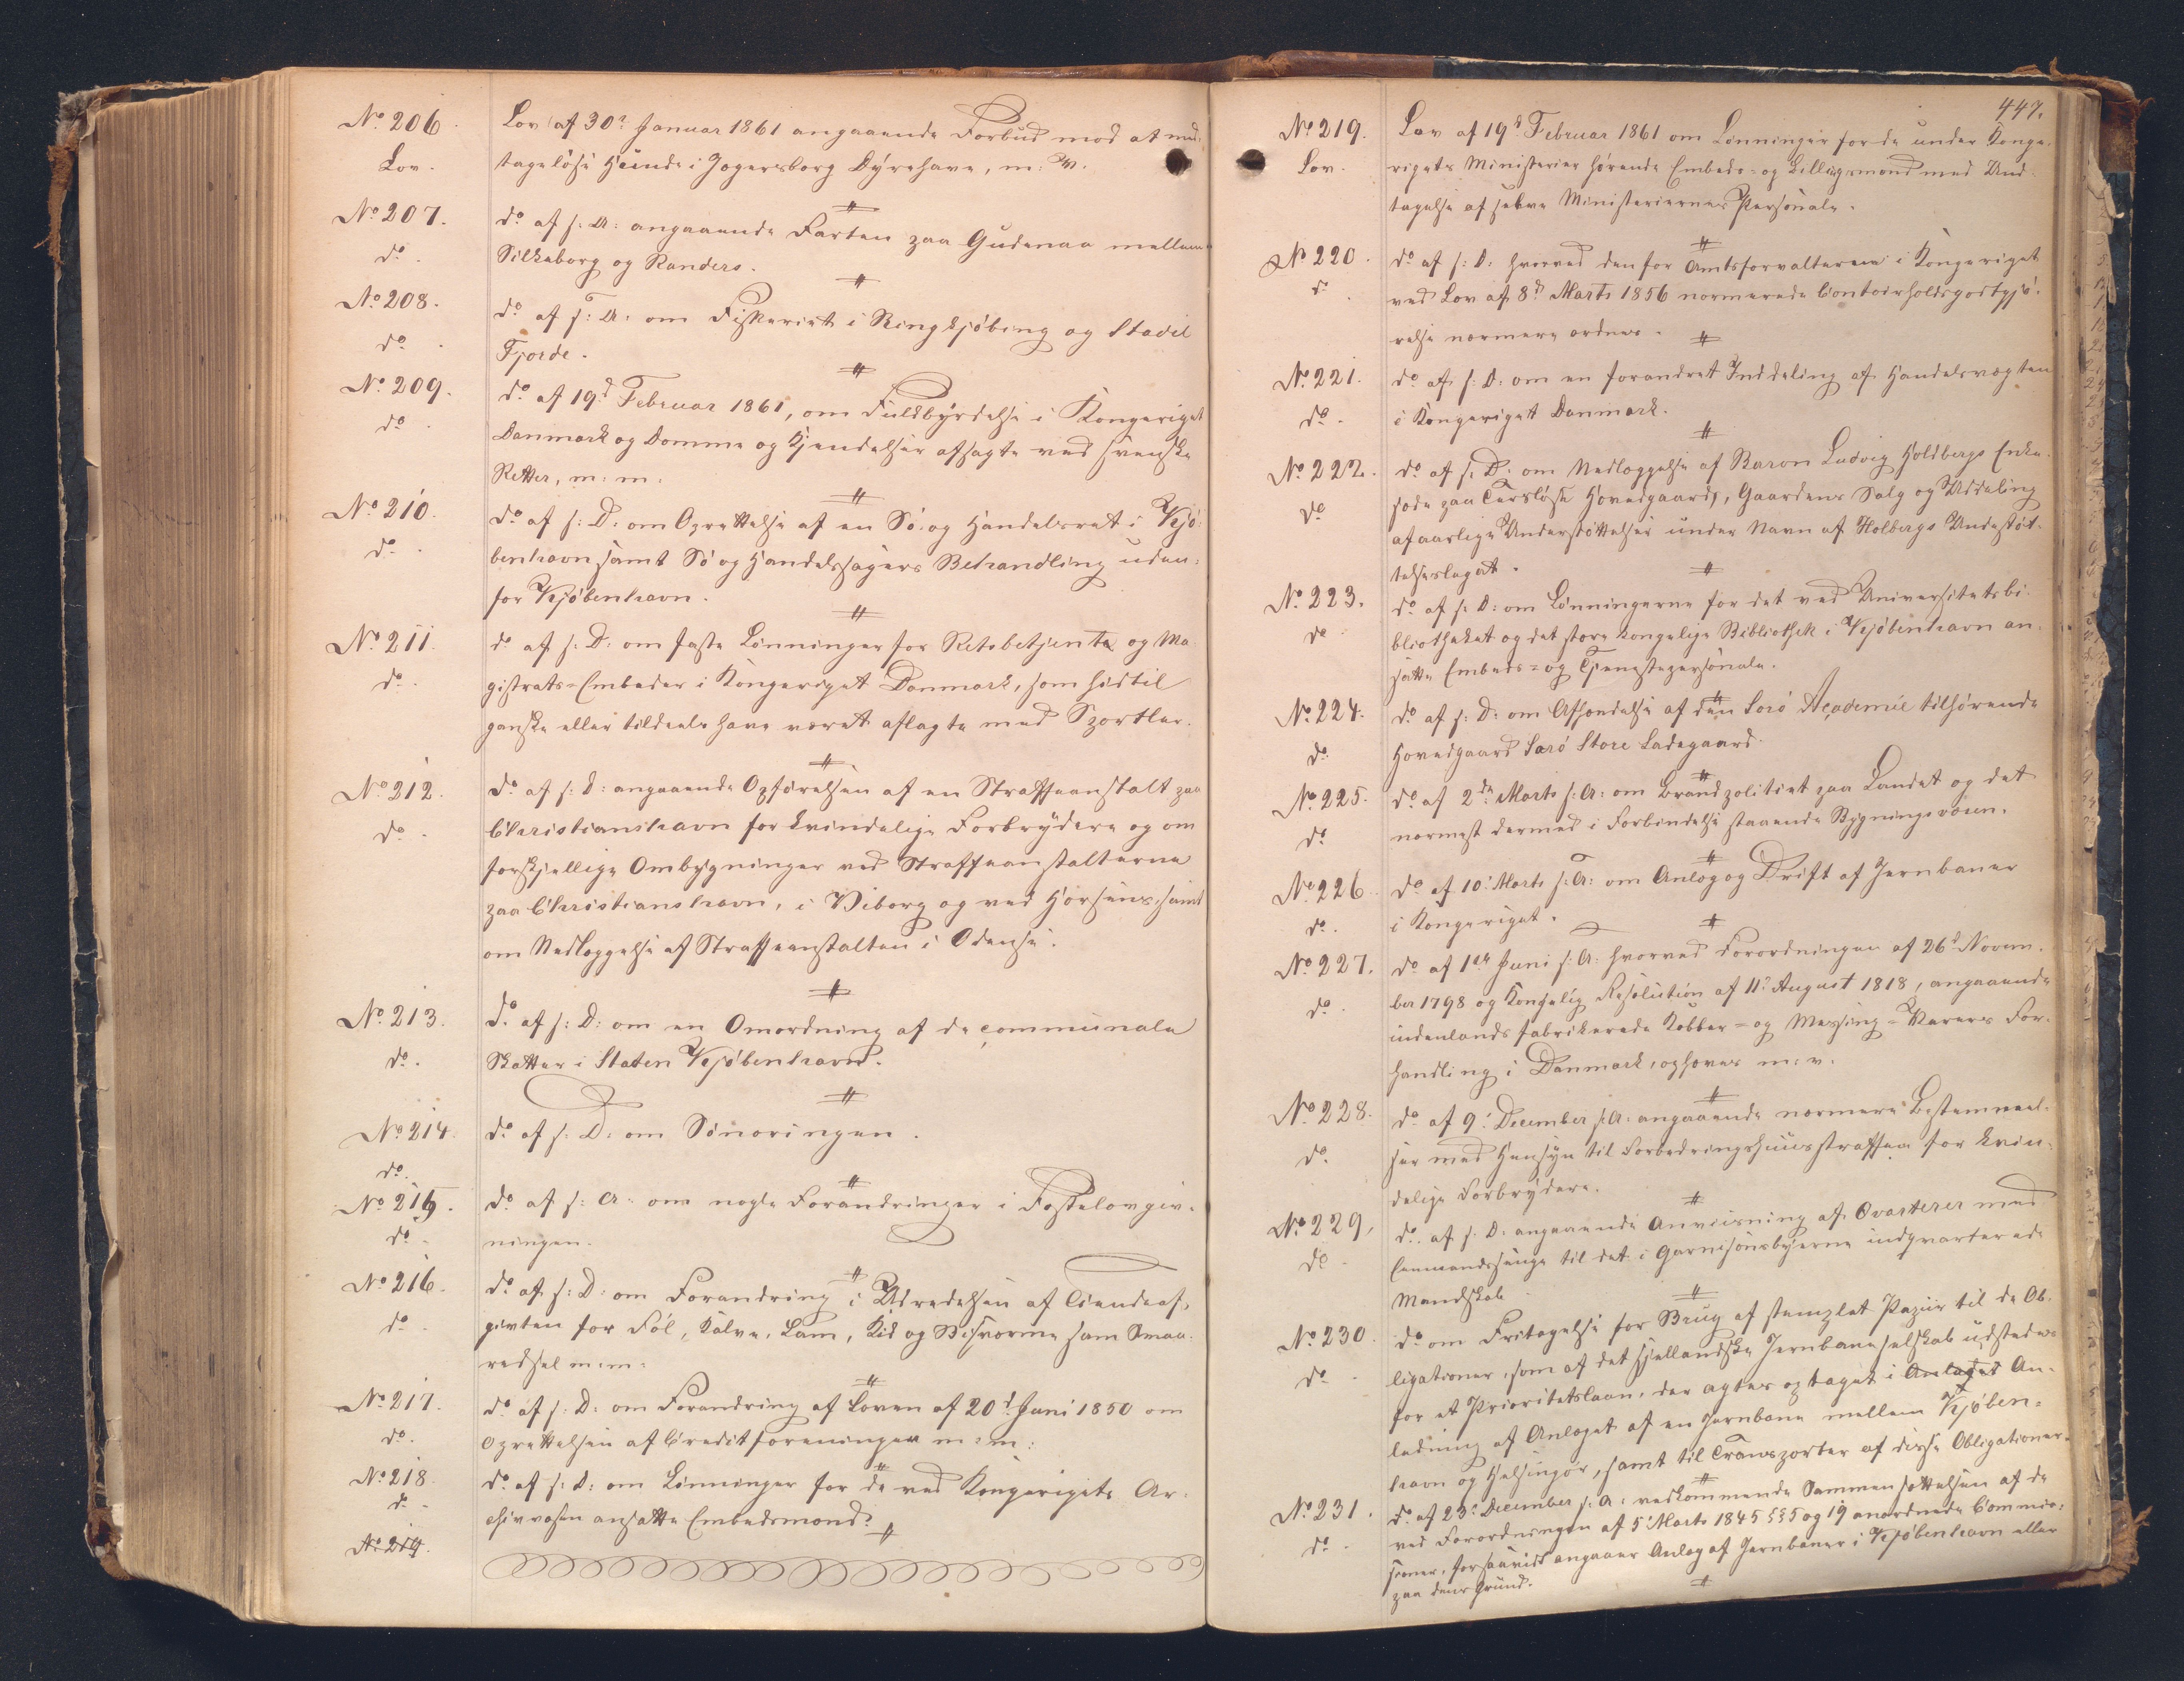 No 206.
Lov.
Lov af 30te Januar 1861 angaaende Forbud mod at med-
tage løse Hunde i Jægersborg Dyrehave, m: v.
No 207.
do.
do af s: A: angaaende Farten paa Gudenaa mellem
Silkeborg og Randers.
No 208.
do.
do af s: A: om Fiskeriet i Ringkjøbing og Stadil
Fjorde.
No 209.
do.
do af 19d Februar 1861, om Fuldbyrdelse i Kongeriget
Danmark og Domme og Kjendelser afsagte ved svenske
Retter, m: m:
No 210.
do.
do af s: D: om Oprettelse af en Sø- og Handelsret i Kjø-
benhavn samt Sø og Handelssagers Behandling uden-
for Kjøbenhavn.
No 211.
do.
do af s: D: om faste Lønninger for Retsbetjente og Ma-
gistrats-Embeder i Kongeriget Danmark, som hidtil
ganske eller tildeels have været aflagte med Sportler.
No 212.
do.
do af s: D: angaaende Opførelsen af en Straffeanstalt paa
Christianshavn for kvindelige Forbrydere og om
forskjellige Ombygninger ved Straffeanstalterne
paa Christianshavn, i Viborg og ved Horsens, samt
om Nedlæggelse af Straffeanstalten i Odense.
No 213.
do.
do af s: D: om en Omordning af de communale
Skatter i Staden Kjøbenhavn.
No 214.
do.
do af s: D: om Sønæringen.
No 215.
do.
do af s: A: om nogle Forandringer i Fæstelovgiv-
ningen.
No 216.
do.
do af s: D: om Forandring i Udredelsen af Tiendeaf-
givten for Føl, Kalve, Lam, Kid og Bisværme som Smaa-
redsel m: m:
No 217.
do.
do af s: D: om Forandring af Loven af 20d Juni 1850 om
Oprettelsen af Creditforeninger m: m:
No 218.
do.
do af s: D: om Lønninger for de ved Kongerigets Ar-
chivvæsen ansatte Embedsmænd.
No 219.
447.
No 219.
Lov.
Lov af 19d Februar 1861 om Lønninger for de under Konge-
rigets Ministerier hørende Embeds- og Bestillingsmænd med Und-
tagelse af selve Ministeriernes Personale.
No 220.
do.
do af s: D: hvorved den for Amtsforvalterne i Kongeriget
ved Lov af 8d Marts 1856 normerede Contoirholdsgodtgjø-
relse nærmere ordnes.
No 221.
do.
do af s: D: om en forandret Inddeling af Handelsvægten
i Kongeriget Danmark.
No 222.
do
do af s: D: om Nedlæggelse af Baron Ludvig Holdbergs Enke-
sæde paa Tersløse Hovedgaard, Gaardens Salg og Uddeling
af aarlige Understøttelser under Navn af Holbergs Undestøt-
telseslegat.
No 223.
do
do af s: D: om Lønningerne for det ved Universitetsbi-
bliotheket og det store kongelige Bibliothek i Kjøbenhavn an-
satte Embeds- og Tjenestepersonale.
No 224.
do
do af s: D: om Afhændelse af den Sorø Academie tilhørende
Hovedgaard Sorø Store Ladegaard.
No 225.
do
do af 2den Marts s: A: om Brandpolitiet paa Landet og det
nærmest dermed i Forbindelse staaende Bygningsvæsen.
No 226.
do.
do af 10. Marts s: A: om Anlæg og Drift af Jernbaner
i Kongeriget.
No 227.
do.
do af 1ste Juni s: A: hvorved Forordningen af 26d Novem-
ber 1798 og Kongelig Resolution af 11te August 1818, angaaende
indenlands fabrikerede Kobber- og Messing-Varers For-
handling i Danmark, ophæves m: v.
No 228.
do.
do af 9. December s: A: angaaende nærmere Bestemmel-
ser med Hensyn til Forbedringshuusstraffen for kvin-
delige Forbrydere.
No 229.
do.
do af s: D: angaaende Anviisning af Qvarterer med
Eenmandssenge til det i Garnisonsbyerne indqvarterede
Mandskab.
No 230.
do.
do om Fritagelse for Brug af stemplet Papiir til de Ob-
ligationer, som af det sjællandske Jernbaneselskab udstedes
for et Prioritetslaan, der agtes optaget i Anlæget An-
ledning af Anlæget af en Jernbane mellem Kjøben-
havn og Helsingør, samt til Transporter af disse Obligationer.
No 231.
do.
do af 23. December s: A: vedkommende Sammensættelsen af de
ved Forordningen af 5. Marts 1845 §§5 og 19 anordnede Commis-
sioner, forsaavidt angaaer Anlæg af Jernbaner i Kjøbenhavn eller
paa dens Grund.